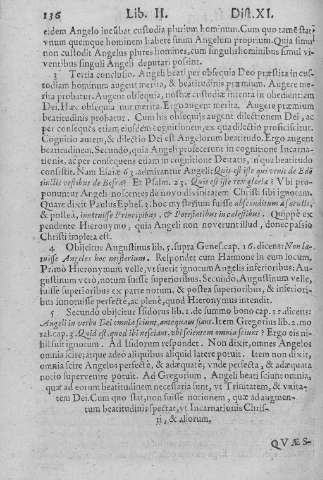 136 Lib. II. Dist. XI.
eidem Angelo incũbat custodia plurium hominum. Cum quo tamẽ stat v-
vnum quemque hominem habere suum Angelum proprium. Quia simul
non custodit Angelus plures homines, cum singulis hominibus simul vi-
ventibus singuli Angeli deputari possint.
3 Tertia conclusio. Angeli beati per obsequia Deo præstita in cus-
todiam hominum augent merita, & beatitudinis præmium. Augere me-
rita probatur. Augent obsequia, nostræ custodiæ intenta in obedientiam
Dei. Hæc obsequia sunt merita. Ergo augent merita. Augere præmium
beatitudinis probatur. Cum his obsequijs augent dilectionem Dei, ac
per consequẽs etiam eiusdem cognitionem, ex qua dilectio proficiscitur.
Cognitio autem, & dilectio Dei est Angelorum beatitudo. Ergo augent
beatitudinem. Secundo, quia Angeli profecerunt in cognitione Incarna-
tionis, ac per consequens etiam in cognitione Deitatis, in qua beatitudo
consistit. Nam Isaiæ 63. admirantur Angeli: Quis est iste qui venit de Edõ
tinctis vestibus de Bosra? Et Psalm. 23. Quis est iste rex gloriæ? Vbi pro-
ponuntur Angeli noscentes de novo divinitatem Christi sibi ignotam.
Quare dixit Paulus Ephes. 3. hoc mysterium fuisse absconditum à sæculis,
& postea, innotuisse Principibus, & Potestatibus in cælestibus. Quippè ex-
pendente Hieronymo, quia Angeli non noverunt illud, donec passio
Christi impleta est.
4 Obijcitur Augustinus lib. 5. supra Genes. cap. 16. dicens: Non la-
tuisse Angelos hoc mysterium. Respondet cum Haymone in eum locum,
Primò Hieronymum velle, vt fuerit ignotum Angelis inferioribus: Au-
gustinum verò, notum fuisse superioribus. Secundò, Augustinum velle,
fuisse superioribus ex parte notum, & postea superioribus, & inferiori-
bus innotuisse perfectè, ac plenè, quod Hieronymus intendit.
5 Secundo obijcitur Isidorus lib. 1. de summo bono cap. 12. dicens:
Angeli in verbo Dei omnia sciunt, antequam fiant. Item Gregorius lib. 2. mo
ral. cap. 3. Quid est quod ibi nesciant, vbi scientem omnia sciunt? Ergo eis ni-
hil fuit ignotum. Ad Isidorum respondet. Non dixit, omnes Angelos
omnia scire; atque adeo aliquibus aliquid latere potuit. Item non dixit,
omnia scire Angelos perfectè, & adæquatè, vnde perfecta, & adæquata
notio supervenire potuit. Ad Gregorium. Angeli beati sciunt omnia,
quæ ad eorum beatitudinem necessaria sunt, vt Trinitatem, & vnita-
tem Dei. Cum quo stat, non fuisse notionem, quæ ad augmen-
tum beatitudinis spectat, vt Incarnationis Chris-
ti, & aliorum.
QVÆS-